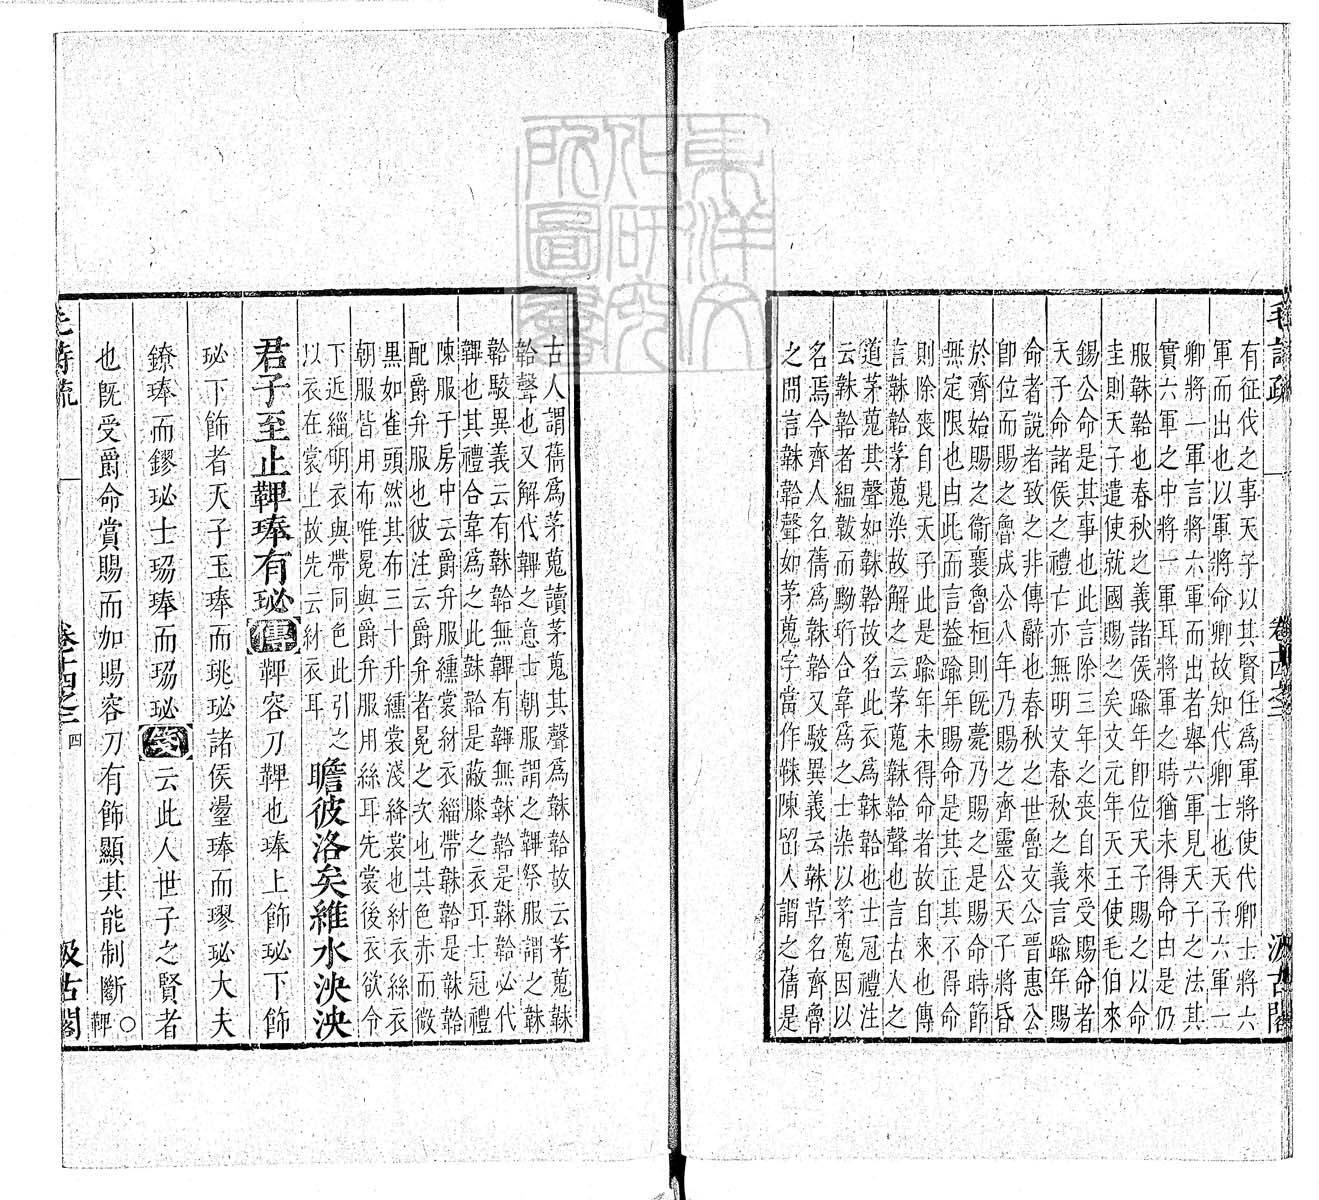 毛詩疏
卷十四之二
汲古閣
有征伐之事天子以其賢任爲軍將使代卿士將六
軍而出也以軍將命卿故知代卿士也天子六軍一
卿將一軍言將六軍而出者舉六軍見天子之法其
實六軍之中將一軍耳將軍之時猶未得命由是仍
服韎韐也春秋之義諸侯踰年卽位天子賜之以命
圭則天子遣使就國賜之矣文元年天王使毛伯來
錫公命是其事也此言除三年之喪自來受賜命者
天子命諸侯之禮亡亦無明文春秋之義言踰年賜
命者說者致之非傳辭也春秋之世魯文公晉惠公
卽位而賜之魯成公八年乃賜之齊靈公天子將昏
於齊始賜之衞襄魯桓則旣薨乃賜之是賜命時節
無定限也由此而言益踰年賜命是其正其不得命
則除喪自見天子此是踰年未得命者故自來也傳
言韎韐茅蒐染故解之云茅蒐韎韐聲也言古人之
道茅蒐其聲如韎韐故名此衣爲韎韐也士冠禮注
云韎韐者縕韍而黝珩合韋爲之士染以茅蒐因以
名焉今齊人名蒨爲韎韐又駿異義云韎草名齊魯
之間言韎韐聲如茅蒐字當作韎陳留人謂之蒨是
古人謂蒨爲茅蒐讀茅蒐其聲爲韎韐故云茅蒐韎
韐聲也又解代韠之意士朝服謂之韠祭服謂之韎
韐駿異義云有韎韐無韠有韠無韎韐是韎韐必代
韠也其禮合韋爲之此韎韐是蔽膝之衣耳士冠禮
陳服于房中云爵弁服纁裳紂衣緇帶韎韐是韎韐
配爵弁服也彼注云爵弁者冕之次也其色赤而微
黑如雀頭然其布三十升纁裳淺絳裳也紂衣絲衣
朝服皆用布唯冕與爵弁服用絲耳先裳後衣欲令
下近緇明衣與帶同色此引之
以衣在裳上故先云紂衣耳
瞻彼洛矣維水泱泱
君子至止鞞琫有珌傳鞞容刀鞞也琫上飾珌下飾
珌下飾者天子玉琫而珧珌諸侯璗琫而璆珌大夫
鐐琫而鏐珌士珕琫而珕珌箋云此人世子之賢者
也旣受爵命賞賜而加賜容刀有飾顯其能制斷○鞞
毛詩疏
卷十四之二
四
汲古閣
東洋文化研究所圖書